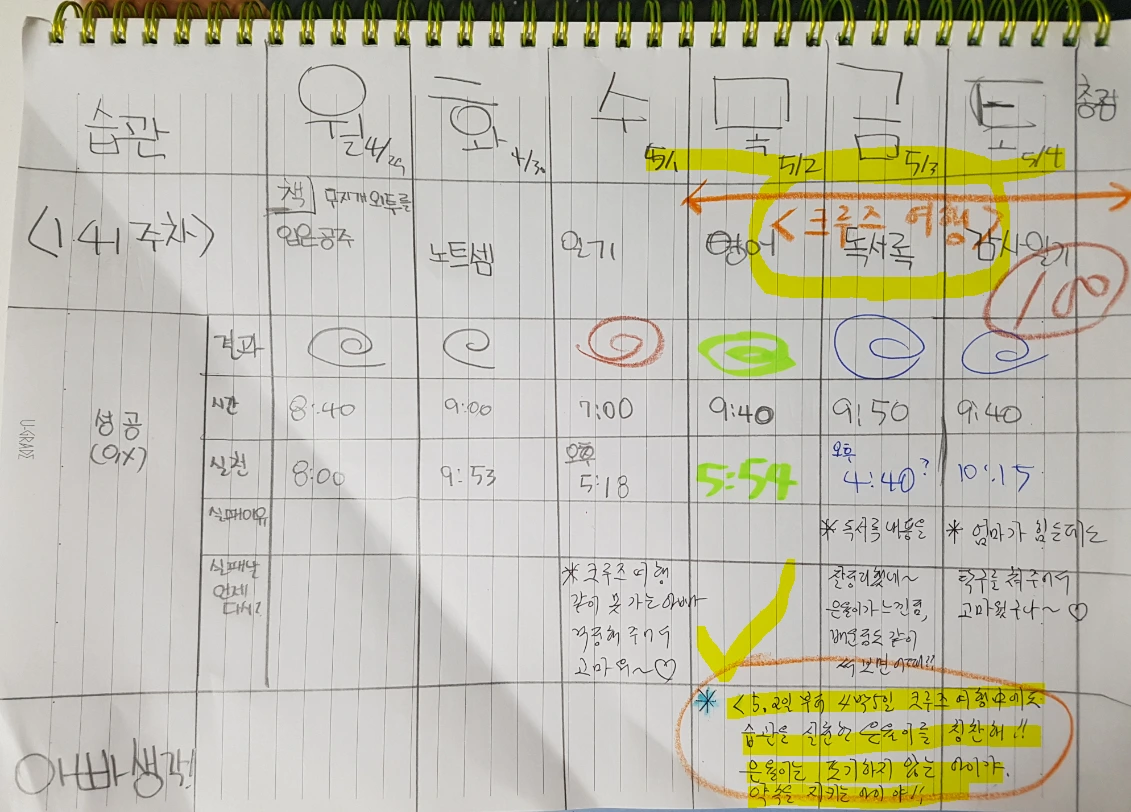 습관
월 4/29
화 4/30
수 5/1
목 5/2
금 5/3
토 5/4
총점
<141주차>
책 무지개 외투를
입은공주
노트셈
일기
영어
독서록
감사일기
<크루즈 여행>
100
성공
(O/X)
결과
시간
8:40
9:00
7:00
9:40
9:50
9:40
실천
8:00
9:53
오후
5:18
5:54
오후
4:40?
10:15
실패이유
실패날
언제
다시?
* 크루즈 여행
같이 못 가는 아빠
걱정해 주어서
고마워~♡
* 독서록 내용을
잘 정리했네~
은율이가 느낀점,
배운점도 같이
써 보면 어때!!
* 엄마가 힘든데도
탁구를 쳐 주어서
고마웠구나~♡
아빠생각!
* <5.2일부터 4박5일 크루즈 여행中에도
습관을 실천한 은율이를 칭찬해!!
은율이는 포기하지 않는 아이야.
약속을 지키는 아이야!!
U-GRADE